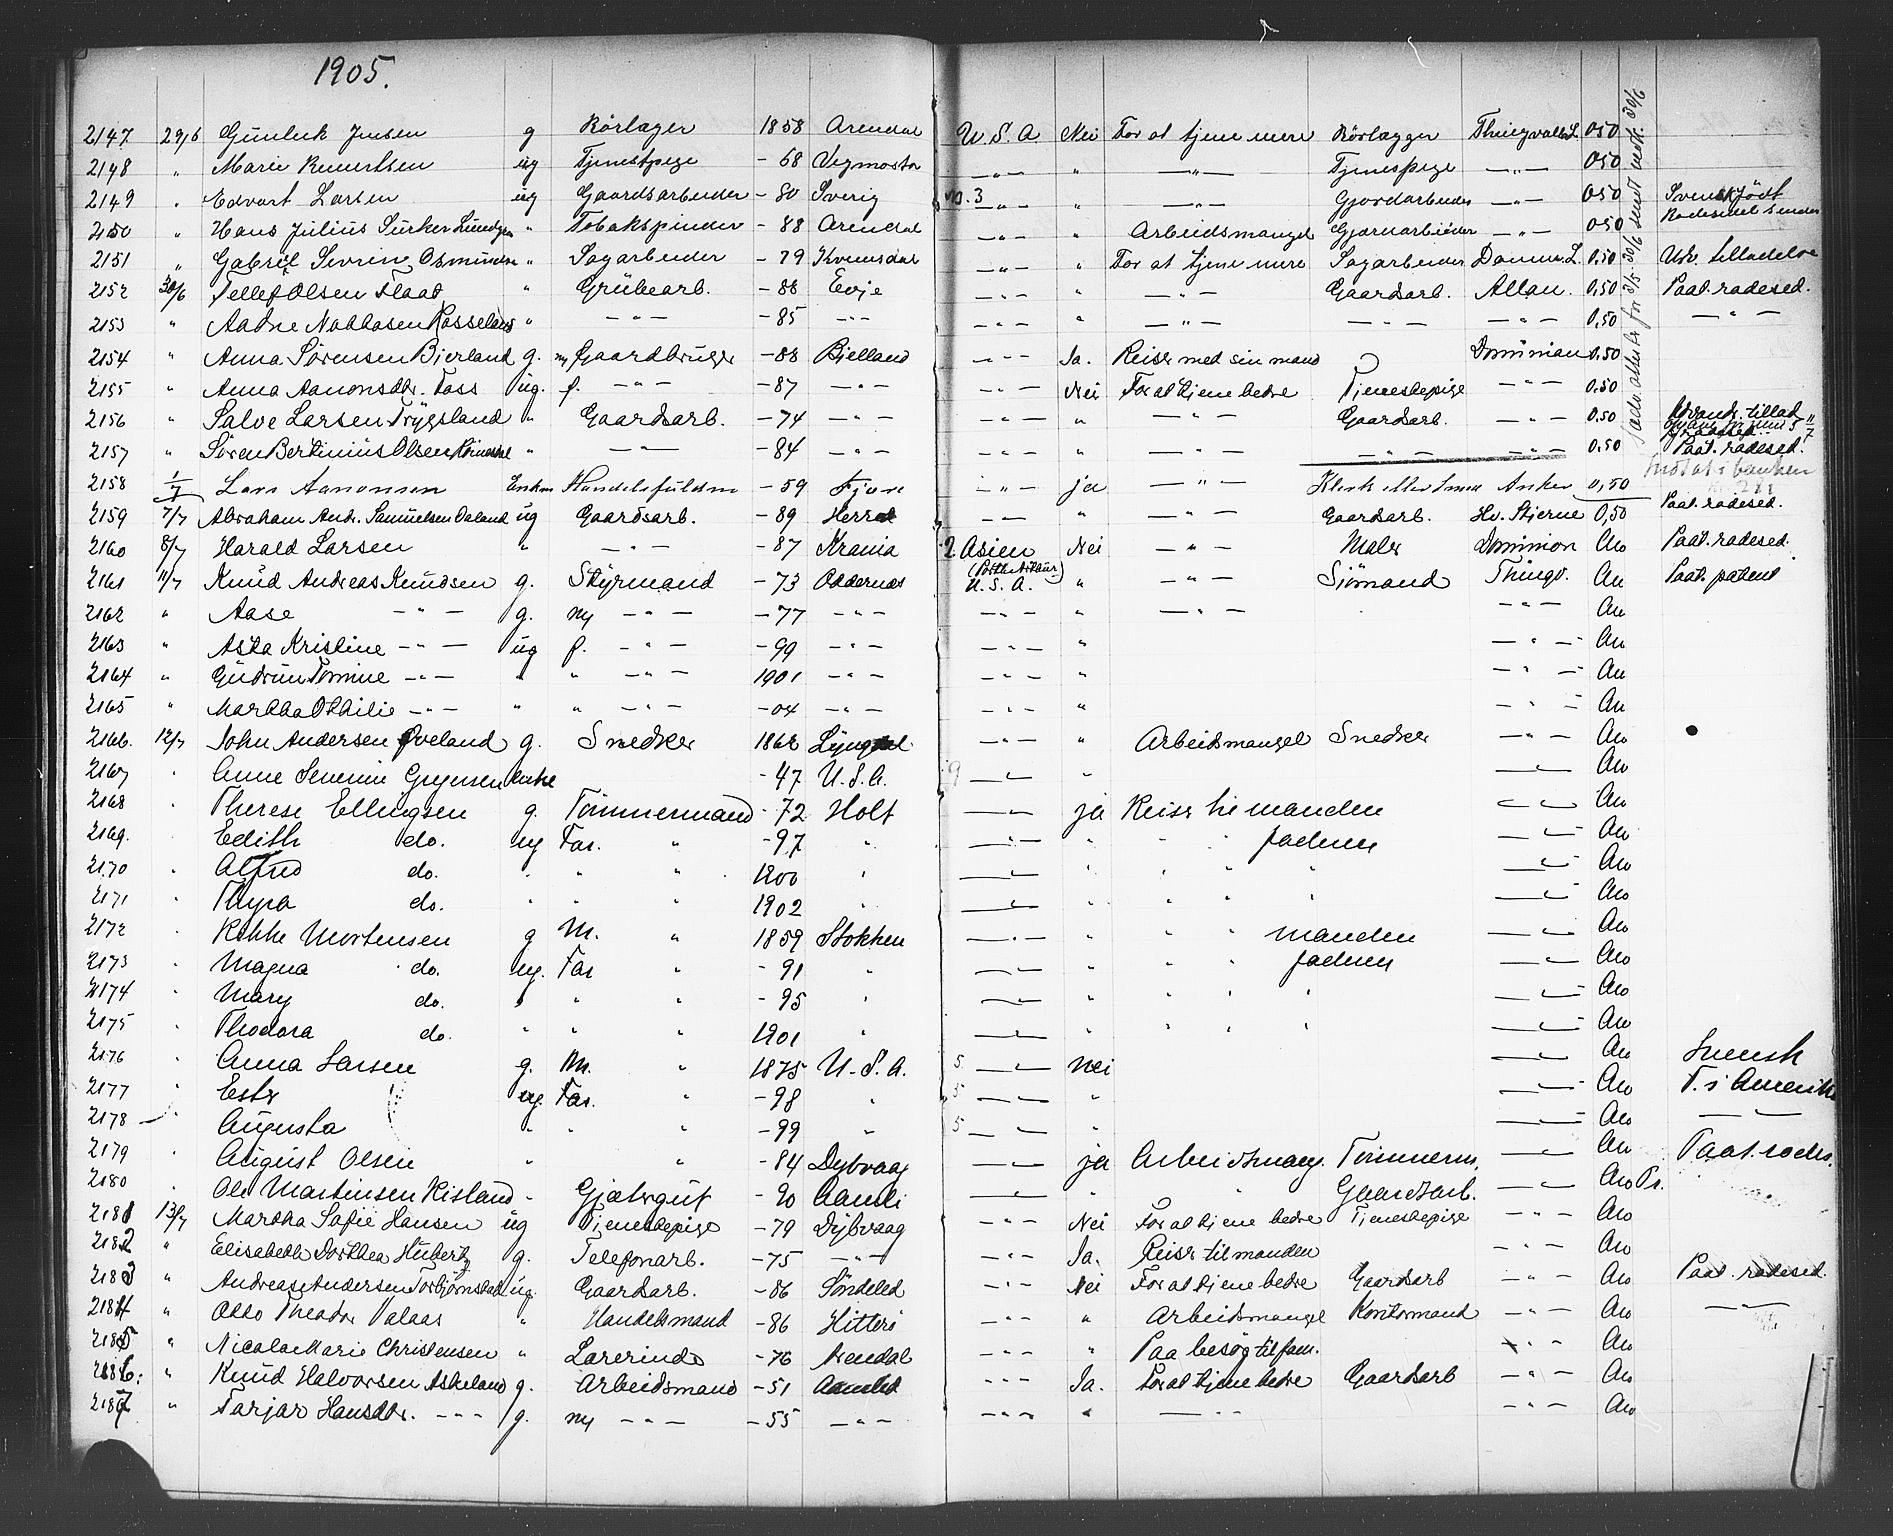 1905.
2147 29/6 Gunluk Jensen g Rörlæger 1858 Arendal U. S. A. Nei For at tjene mere Rörlægger Thingvalla L. 050
2148 " Marie Reinertsen ug Tjenestpige - 68 Vegmostr — " — " — " — Tjenespige — " — 050
2149 " Edvart Larsen ug Gaardsarbeider - 80 Sverig — " — " — " — Gjordarbeider — " — 050 Svensk födt
2150 " Hans Julius " Tobakspinder - 88 Arendal — " — " Arbeidsmangel — " — 050 Radesedel
2151 " Gabriel Severin Osmundsen " Sagarbeider - 79 — " — " For at tjene mere Sagarbeider Domin. L. 0,50 Utv. tilladelse
2152 30/6 Tellef Olsen Flaat " Grubearb. - 88 Evje — " — " — " — Gaardsarb. Allan. 0,50 Paat. radesed.
2153 " Aadne " — " — - 85 — " — — " — " — " — — " — — " — 0,50 — " —
2154 " Anna Sørensen Bjerland g. m Gaardbruger - 88 Bjelland — " — Ja. Reiser med sin mand Dominian 0,50
2155 " Anna Aanonsdtr. Foss ug. f. — " — - 87 — " — — " — Nei For at tjene bedre Tjenestepige — " — 0.50
2156 " Salve Larsen Trygsland " Gaardsarb. - 74 — " — — " — " — " — Gaardsarb. — " — 0.50 Udvandr. tillad
2157 " Søren Bertinius Olsen " — " — - 84 — " — — " — " — " — — " — — " — 0.50 Paat. radesed.
2158 1/7 Lars Aanonsen Enkm Handelsfuldm - 59 Fjære — " — ja — " — Klerk eller Anker 0,50
2159 7/7 Abraham Andr. Samuelsen Oeland ug Gaardsarb. - 89 — " — " — " — Gaardsarb. Hv. Stjerne 0,50 Paat. radesed.
2160 8/7 Harald Larsen " — " — - 87 Krania 2 Asien Nei — " — Maler Dominion Aw Paat. radesed.
(Porth Arthur)
2161 11/7 Knud Andreas Knudsen g. Styrmand - 73 Oddernes U. S. A. " — " — Sjömand Thingv. Aw Paat. patent
2162 " Aase — " — g. m — " — - 77 — " — — " — " — " — — " — Aw
2163 " Asta Kristine — " — ug f. — " — - 99 — " — — " — " — " — Aw
2164 " Gudrun Tomine — " — " " — " — 1901 — " — — " — " — " — Aw
2165 " Martha Othilie — " — " " — " — - 04 — " — — " — " — " — Aw
2166. 12/7 John Andersen Øveland g. Snedker 1862 Lyngdal — " — " Arbeidsmangel Snedker — " — Aw
2167 " Anne Severine Enke - 47 U. S. A. 9 — " — " — " — Aw
2168 " Therese Ellingsen g. Tömmermand - 72 Holt — " — ja Reiser til manden — " — Aw
2169. " Edith do. ug Far. " - 97 " — " — " " " faderen — " — Aw
2170 " Alfred do. " " " 1900 " — " — " " " " — " — Aw
2171 " Thyra do. " " " 1902 " — " — " " " " — " — Aw
2172 " Mortensen g M. " 1859 Stokken — " — " " " manden — " — Aw
2173 " Magna do. ug. Far " - 91 " — " — " " " faderen — " — Aw
2174 " Mary do. " " " - 95 " — " — " " " " — " — Aw
2175 " Thodora do. " " " 1901 " — " — " " " " — " — Aw
2176 " Anna Larsen g. M. " 1875 U. S. A. 5 — " — Nei — " — Aw Svensk
2177 " Ester ug. Far. " - 98 " 5 — " — " — " — Aw T. i Amerika
2178 " Augusta " " " - 99 " 5 — " — " — " — Aw — " —
2179 " August Olsen " " - 84 Dybvaag — " — ja Arbeidsmang. Tömmerm. — " — Aw Paat. rades.
2180 " Ole Martinsen Risland - Gjætergut - 90 Aamli — " — " " Gaardsarb. — " — Aw Pr.
2181 13/7 Martha Sofie Hansen ug Tjenestepige - 79 Dybvaag — " — Nei For at tjene bedre Tjenestepige — " — Aw
2182 " Elisabeth Dorthea Hubertz g. Telefonarb. - 75 — " — — " — Ja. Reiser til manden — " — Aw
2183 " Andreas Andersen Torbjørnsdal ug. Gaardsarb. - 86 Söndeled — " — Nei For at tjene bedre Gaardsarb — " — Aw Paat. radesed.
2184 " Otto Theodor Valaas " Handelsmand - 86 Hitterö — " — " Arbeidsmangel Kontormand — " — Aw — " —
2185 " Nicola Marie Christensen " Lærerinde - 76 Arendal — " — " Paa besøg til fam. — " — Aw
2186. " Knud Halvorsen Askeland g. Arbeidsmand - 51 Aamli — " — Ja. For at tjene bedre Gaardsarb — " — Aw
2187 " Tarjar Hansdtr. — " — g. m — " — - 55 — " — — " — " — " — — " — Aw